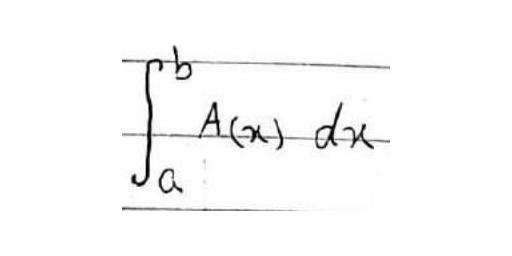 ∫_a^b A(x) dx